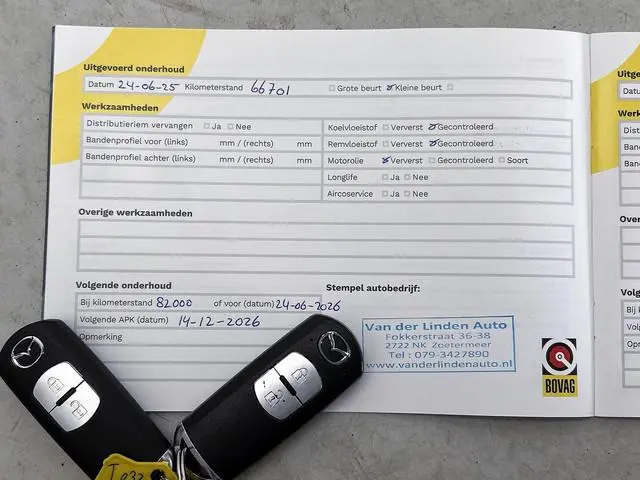 Uitgevoerd onderhoud
Datum 24-06-25 Kilometerstand 66701 Grote beurt Kleine beurt
Werkzaamheden
Distributieriem vervangen Ja Nee
Bandenprofiel voor (links) mm / (rechts) mm
Bandenprofiel achter (links) mm / (rechts) mm
Koelvloeistof Ververst Gecontroleerd
Remvloeistof Ververst Gecontroleerd
Motorolie Ververst Gecontroleerd Soort
Longlife Ja Nee
Aircoservice Ja Nee
Overige werkzaamheden
Volgende onderhoud
Bij kilometerstand 82.000 of voor (datum) 24-06-2026
Volgende APK (datum) 14-12-2026
Opmerking
Stempel autobedrijf:
Van der Linden Auto
Fokkerstraat 36-38
2722 NK Zoetermeer
Tel : 079-3427890
www.vanderlindenauto.nl
BOVAG
Uitg
Datu
Werk
Distr
Band
Band
Over
Volg
Bij k
Volg
Opm